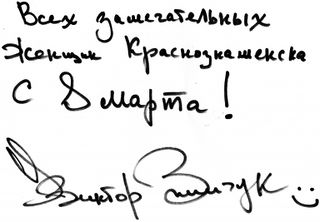 Всех замечательных
Женщин Краснознаменска
С 8 марта!
Виктор Зинчук